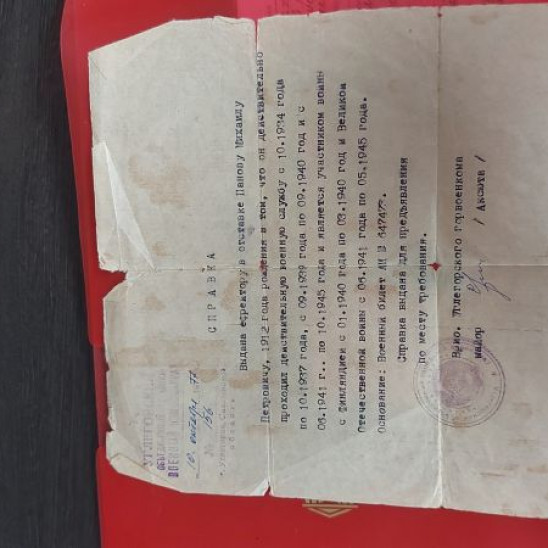 УГЛЕГОР
ОБЪЕД
ВОЕННЫЙ К
"10" октября 77
№ 156
г. Углегорск, Сахалинск
области
СПРАВКА
Выдана ефрейтору в отставке Панову Михаилу
Петровичу, 1912 года рождения в том, что он действительно
проходил действительную военную службу с 10.1934 года
по 10.1937 года, с 09.1939 года по 09.1940 год и с
06.1941 г.. по 10.1945 года и является участником войны
с Финляндией с 01.1940 года по 03.1940 год и Великой
Отечественной войны с 06.1941 года по 05.1945 года.
Основание: Военный билет
Справка выдана для предъявления
по месту требования.
Врио. Углегорского горвоенкома
майор / Аксюта /